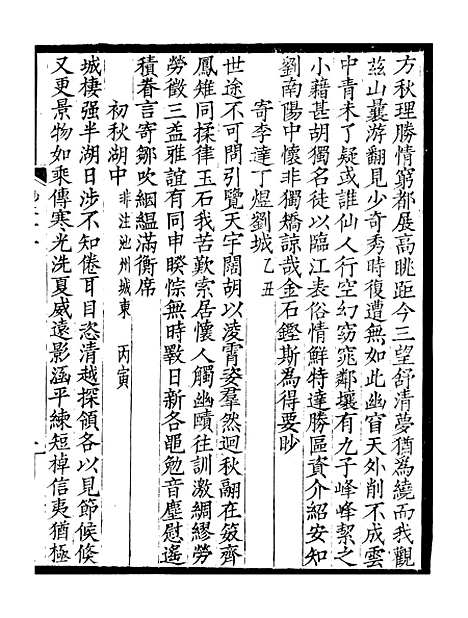 方秋理勝情窮都展高眺距今三望舒清夢猶為繞而我觀
茲山曩游翻見少奇秀時復遭無如此幽窅天外削不成雲
中青未了疑或誰仙人行空幻窈窕鄰壤有九子峰峰挈之
小藉甚胡獨名徒以臨江表俗情鮮特達勝區資介紹安知
劉南陽中懷非獨矯諒哉金石鏗斯為得要眇
寄李達丁煜劉城乙丑
世途不可問引覽天宇闊胡以淩霄姿羣然迴秋翮在笯齊
鳳雉同揉律玉石我苦歎索居懷人觸幽賾往訓激綢繆勞
勞徵三益雅誼有同申睽悰無時斁日新各黽勉音塵慰遙
積眷言寄鄒吹絪緼滿衡席
初秋湖中非注池州城東丙寅
城棲强半湖日涉不知倦耳目恣清越探領各以見節候倏
又更景物如乘傳寒光洗夏威遠影涵平練短棹信夷猶極